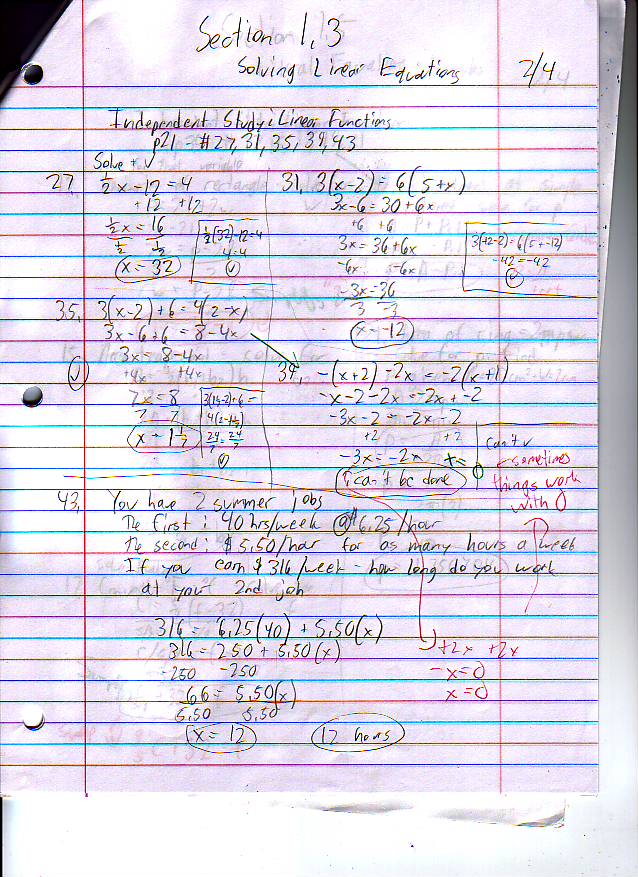 Section 1.3
Solving Linear Equations
2/4
Independent Study: Linear Functions
p21 #27, 31, 35, 39, 43
Solve + √
27. ½x - 12 = 4
+12 +12
½x = 16
½ ½
x = 32
½(32)-12=4
4=4
√
31. 3(x-2) = 6(5+x)
3x-6 = 30+6x
+6 +6
3x = 36+6x
-6x -6x
-3x = 36
-3 -3
x = -12
3(-12-2)=6(5+-12)
-42=-42
√
35. 3(x-2)+6 = 4(2-x)
3x-6+6 = 8-4x
3x = 8-4x
+4x +4x
7x = 8
7 7
x = 1 1/7
√
4(2-1 1/7)
24/7 = 24/7
√
39. -(x+2)-2x = -2(x+1)
-x-2-2x = -2x+-2
-3x-2 = -2x-2
+2 +2
-3x = -2x
can't be done
Can't √
x=0
- sometimes
things work
with 0
+2x +2x
-x=0
x=0
43. You have 2 summer jobs
The first: 40 hrs/week @ $6.25/hour
the second: $5.50/hour for as many hours a week
If you earn $316/week - how long do you work
at your 2nd job
316 = 6.25(40) + 5.50(x)
316 = 250 + 5.50(x)
-250 -250
66 = 5.50(x)
5.50 5.50
x = 12
12 hours